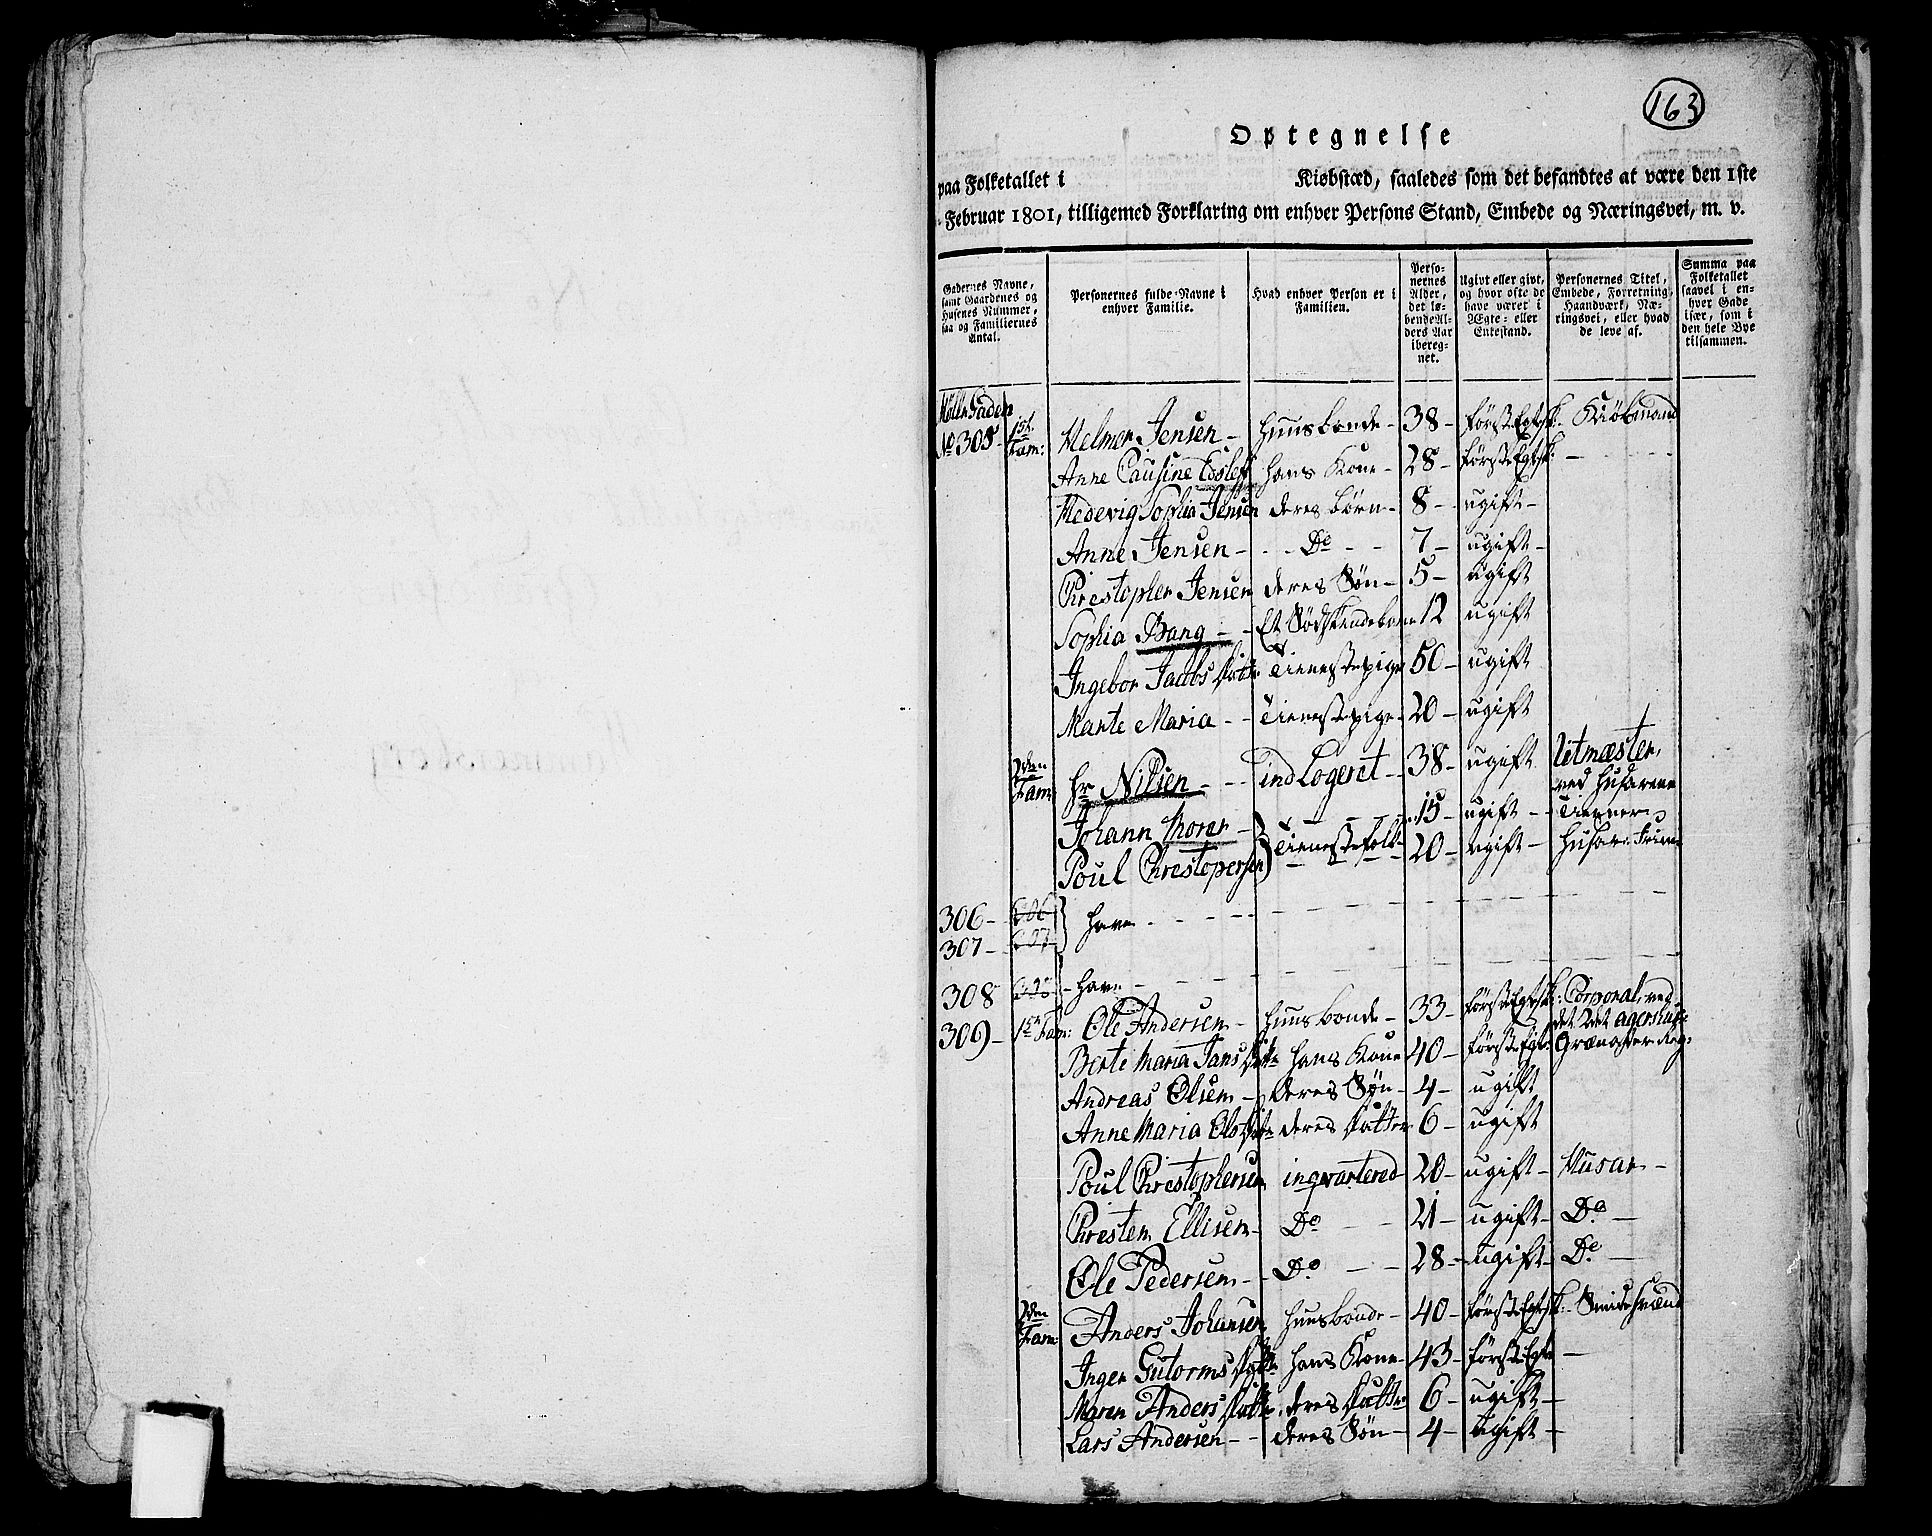 163
Optegnelse
paa Folketallet i Kiøbstæd, saaledes som det befandtes at være den 1ste
Februar 1801, tilligemed Forklaring om enhver Persons Stand, Embede og Næringsvei, m. v.
Gadernes Navne, samt Gaardenes og Husenes Nummer, saa og Familiernes Antal.
Personernes fulde Navne i enhver Familie.
Hvad enhver Person er i Familien.
Personernes Alder, det løbende Alders Aar iberegnet.
Ugivt eller givt, og hvor ofte de have været i Ægte- eller Enkestand.
Personernes Titel, Embede, Forretning, Haandværk, Næringsvei, eller hvad de leve af.
Summa paa Folketallet saavel i enhver Gade især, som i den hele Bye tilsammen.
Mølle Gaden
No 305 1ste Fam: Helmer Jensen - Huusbonde - 38 - første Egtsk. Kiøbmand
Anne Causine hans Kone - 28 - første Egtsk: -
Hedevig Sophia Jensen deres børn - 8 - ugift -
Anne Jensen - Do - 7 - ugift -
Chrestopher Jensen deres Søn - 5 - ugift
Sophia Bang - Et Sødskendebarn 12 ugift
Ingebor Jacobs Datter Tienestepige 50 - ugift
Marte Maria - Tienestepige - 20 - ugift
2den Fam: Hr Nilsen - indLogeret - 38 - ugift Ritmæster
ved Husarene
Johann Morer - 15 - ugift - Tienner
Tienestefolk
Poul Chrestopersen 20 - ugift - Husar
306 - 306
307 - 307 } have
308 308 - have -
309 - 1ste Fam: Ole Andersen - Huusbonde - 33 - første Egtsk: Corporal, ved
det 2det agershus
Berte Maria Jans Datter hans Kone 40 - første Egt: Grænader Reg:
Andreas Olsen - deres Søn - 4 - ugift
Anne Maria Ols Datter deres Datter 6 - ugift
Poul Chrestophersen ingvartered 20 - ugift - Husar -
Chresten Ellisen - Do 21 - ugift - Do -
Ole Pedersen - Do - 28 - ugift - Do -
2den Fam: Anders Johansen Huusbonde - 40 - første Egtsk: Smidesvend
Inger Gutorms Datter hans Kone - 43 - første Egt -
Maren Anders Datter deres Datter 6 - ugift -
Lars Andersen - deres Søn - 4 - ugift -